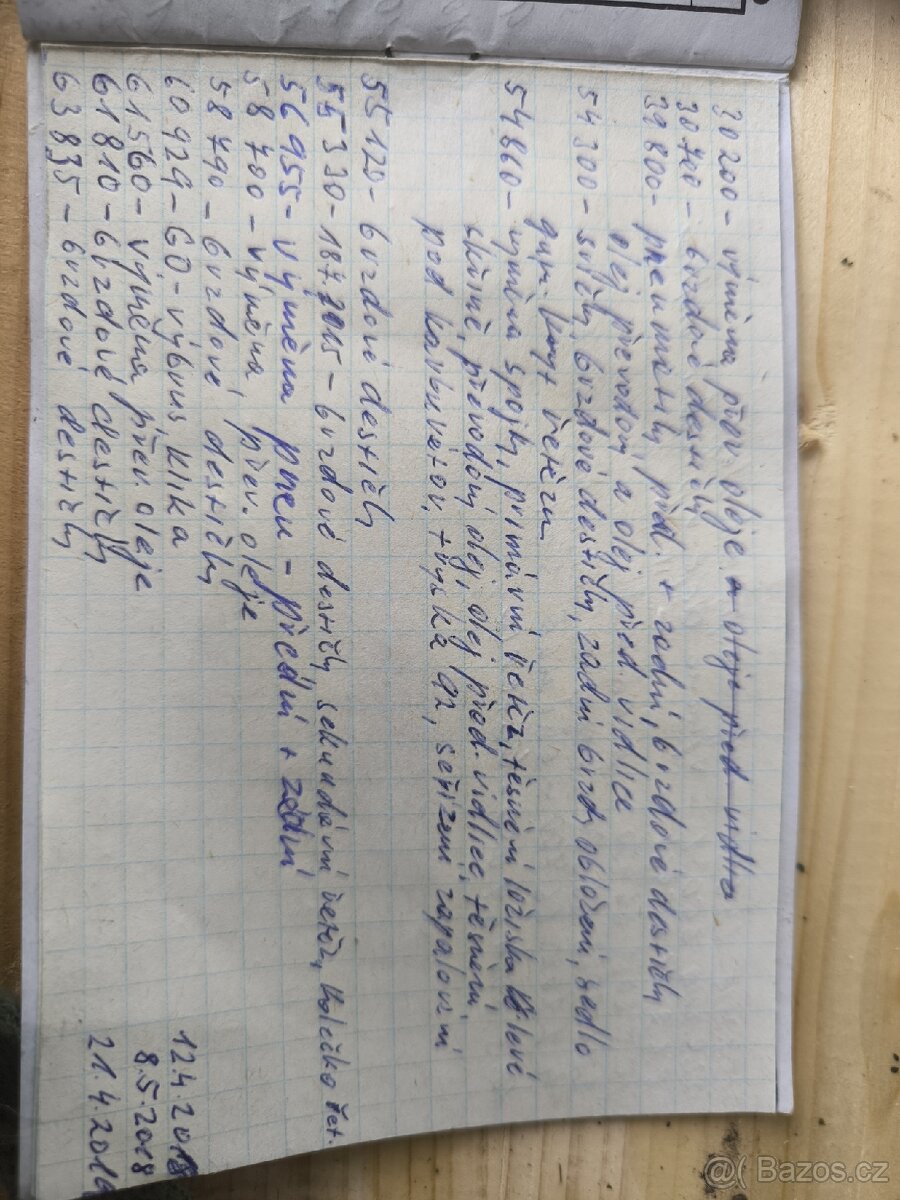 30200 - výměna přev. oleje a oleje před vidlice
30700 - brzdové destičky
39800 - pneumatiky před. + zadní, brzdové destičky
olej převodový a olej před. vidlice
54300 - svíčky, brzdové destičky, zadní brzd. obložení, sedlo
gum. kryt řetězu
54860 - výměna spojky, primární řetěz, těsnění ložiska
skříně, převodový olej, olej před. vidlice, těsnění
pod karburátor, + tryska 92, seřízení zapalování
55120 - brzdové destičky
55330 - 18.7.2015 - brzdové destičky, sekundární řetěz, kolečko řet.
56955 - výměna pneu - přední + zadní
58700 - výměna přev. oleje
58790 - brzdové destičky
60929 - GO - výbrus klika 12.4.2018
61560 - výměna přev. oleje 8.5.2018
61810 - brzdové destičky 21.4.201
63835 - brzdové destičky
@( Bazos.cz